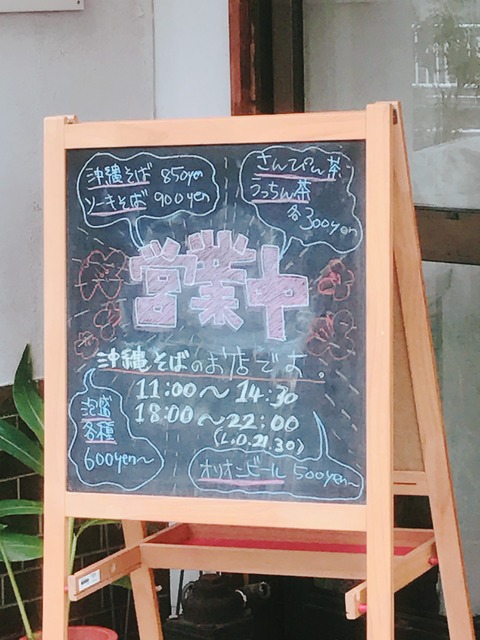 沖縄そば 850yen
ソーキそば 900yen
さんぴん茶
うっちん茶
各300yen
営業中
沖縄そばのお店です。
11:00〜14:30
18:00〜22:00
(L.O.21.30)
泡盛
各種
600yen〜
オリオンビール 500yen〜